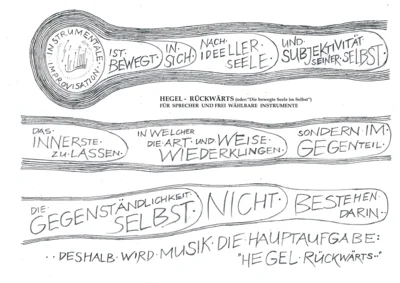 INSTRUMENTALE IMPROVISATION
IST BEWEGT. IN SICH. NACH IDEELLER SEELE. UND SUBJEKTIVITÄT SEINER SELBST.
HEGEL - RÜCKWÄRTS (oder:"Die bewegte Seele im Selbst")
FÜR SPRECHER UND FREI WÄHLBARE INSTRUMENTE
DAS INNERSTE ZU LASSEN. IN WELCHER DIE ART UND WEISE WIEDERKLINGEN. SONDERN IM GEGENTEIL.
DIE GEGENSTÄNDLICHKEIT SELBST. NICHT. BESTEHEN DARIN..
..DESHALB WIRD MUSIK DIE HAUPTAUFGABE:
"HEGEL RÜCKWÄRTS.."